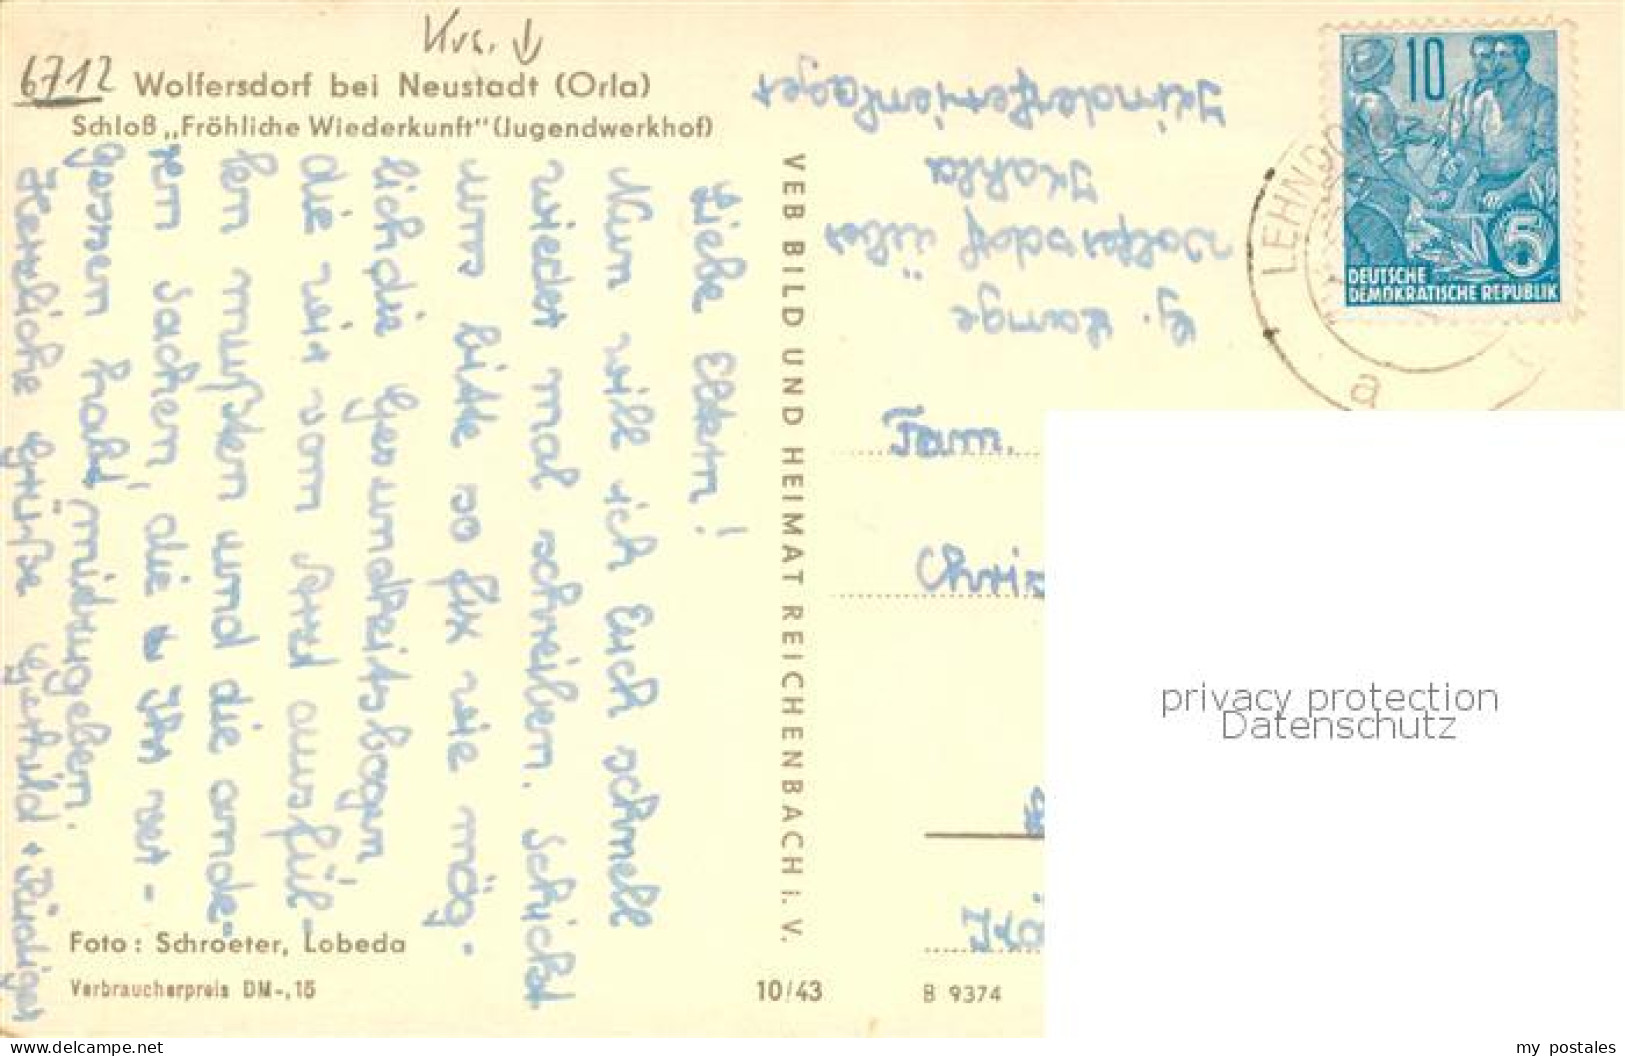 6712
Wolfersdorf bei Neustadt (Orla)
Schloß „Fröhliche Wiederkunft" (Jugendwerkhof)
Liebe Eltern!
Nun will ich Euch schnell
wieder mal schreiben. Schickt
uns bitte so fix wie mög-
lich die Gesundheitsbogen,
die wir vom Arzt ausfül-
len mußten und die ande-
ren Sachen, die Ihr ver-
gessen habt mitzugeben.
Herzliche Grüße Gerhild + Rüdiger
Foto: Schroeter, Lobeda
Verbraucherpreis DM -,15
VEB BILD UND HEIMAT REICHENBACH i. V.
10/43
B 9374
G. Lange
Wolfersdorf über
Kahla
Kinderferienlager
10
5
DEUTSCHE
DEMOKRATISCHE REPUBLIK
LEHNDO
a
Fam.
Chris
privacy protection
Datenschutz
www.delcampe.net
my postales